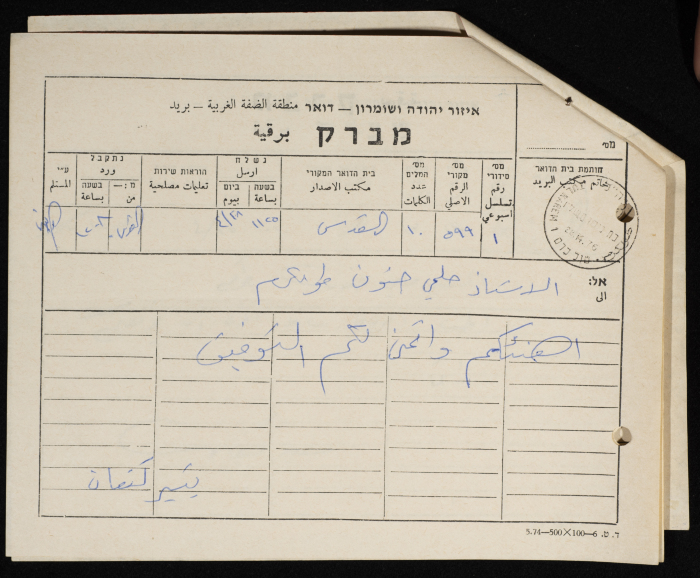 איזור יהודה ושומרון — דואר منطقة الضفة الغربية — بريد
מברק برقية
מס׳
חותמת בית הדואר
ختم مكتب البريد
מס׳ סידורי رقم تسلسل اسبوعي
מס׳ מקורי الرقم الاصلي
מס׳ המלים عدد الكلمات
בית הדואר המקורי مكتب الاصدار
נשלח ارسل
בשעה بساعة
ביום بيوم
הוראות שירות تعليمات مصلحية
נתקבל ورد
בשעה بساعة
מ:— من
ע״י المستلم
١ ٥٩٩ ١٠ القدس ١١٥٥ ٤/٢٨
TULKAREM
אל: الى
الاستاذ حلمي حنون طولكرم
اهنئكم واتمنى لكم التوفيق
يسير كنعان
ד. ט. 6—100×500—5.74